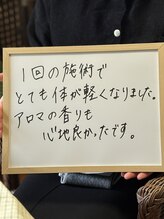 1回の施術で
とても体が軽くなりました。
アロマの香りも
心地良かったです。